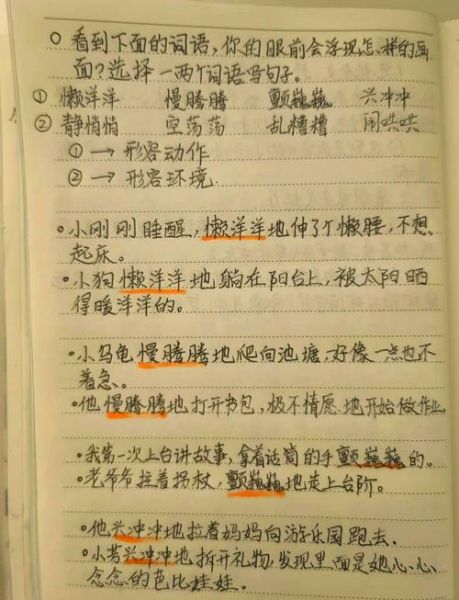 ○ 看到下面的词语,你的眼前会浮现怎样的画
面?选择一两个词语写句子。
① 懒洋洋 慢腾腾 颤巍巍 兴冲冲
② 静悄悄 空荡荡 乱糟糟 闹哄哄
① → 形容动作
② → 形容环境
•小刚刚睡醒,懒洋洋地伸了个懒腰,不想
起床。
•小狗懒洋洋地躺在阳台上,被太阳晒
得暖洋洋的。
•小乌龟慢腾腾地爬向池塘,好像一点也不
着急。
•他慢腾腾地打开书包,极不情愿地开始做作业。
•我第一次上台讲故事,拿着话筒的手颤巍巍的。
•老爷爷拄着拐杖,颤巍巍地走上台阶。
•他兴冲冲地拉着妈妈向游乐园跑去。
•小芳兴冲冲地拆开礼物,发现里面是她心心
念念的芭比娃娃。